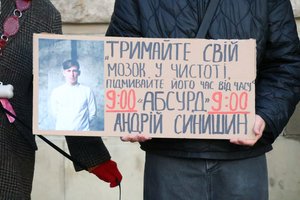 „ТРИМАЙТЕ СВІЙ
МОЗОК У ЧИСТОТІ,
ПІДМИВАЙТЕ ЙОГО ЧАС ВІД ЧАСУ
9:00 «АБСУРД» 9:00
АНДРІЙ СИНИШИН